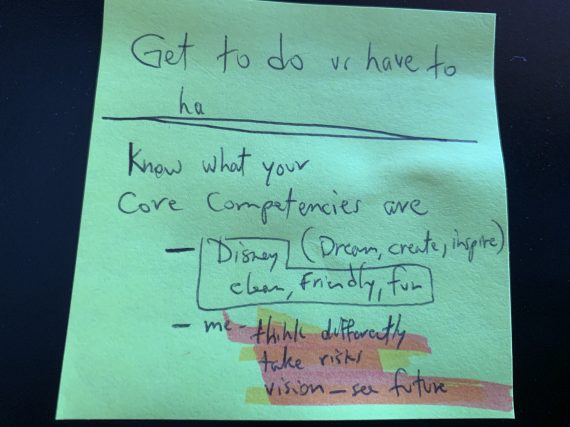 Get to do vs have to
ha
Know what your
Core Competencies are
- Disney (Dream, create, inspire)
clean, Friendly, fun
- me - think differently
take risks
vision - see future